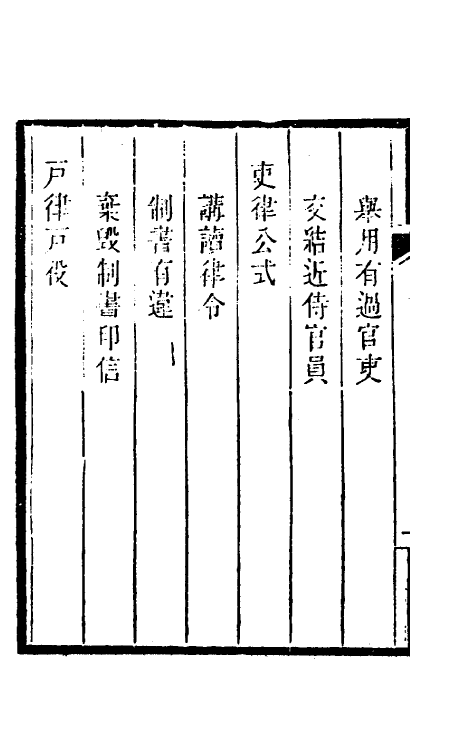 舉用有過官吏
交結近侍官員
吏律公式
講讀律令
制書有違
棄毀制書印信
戸律戸役